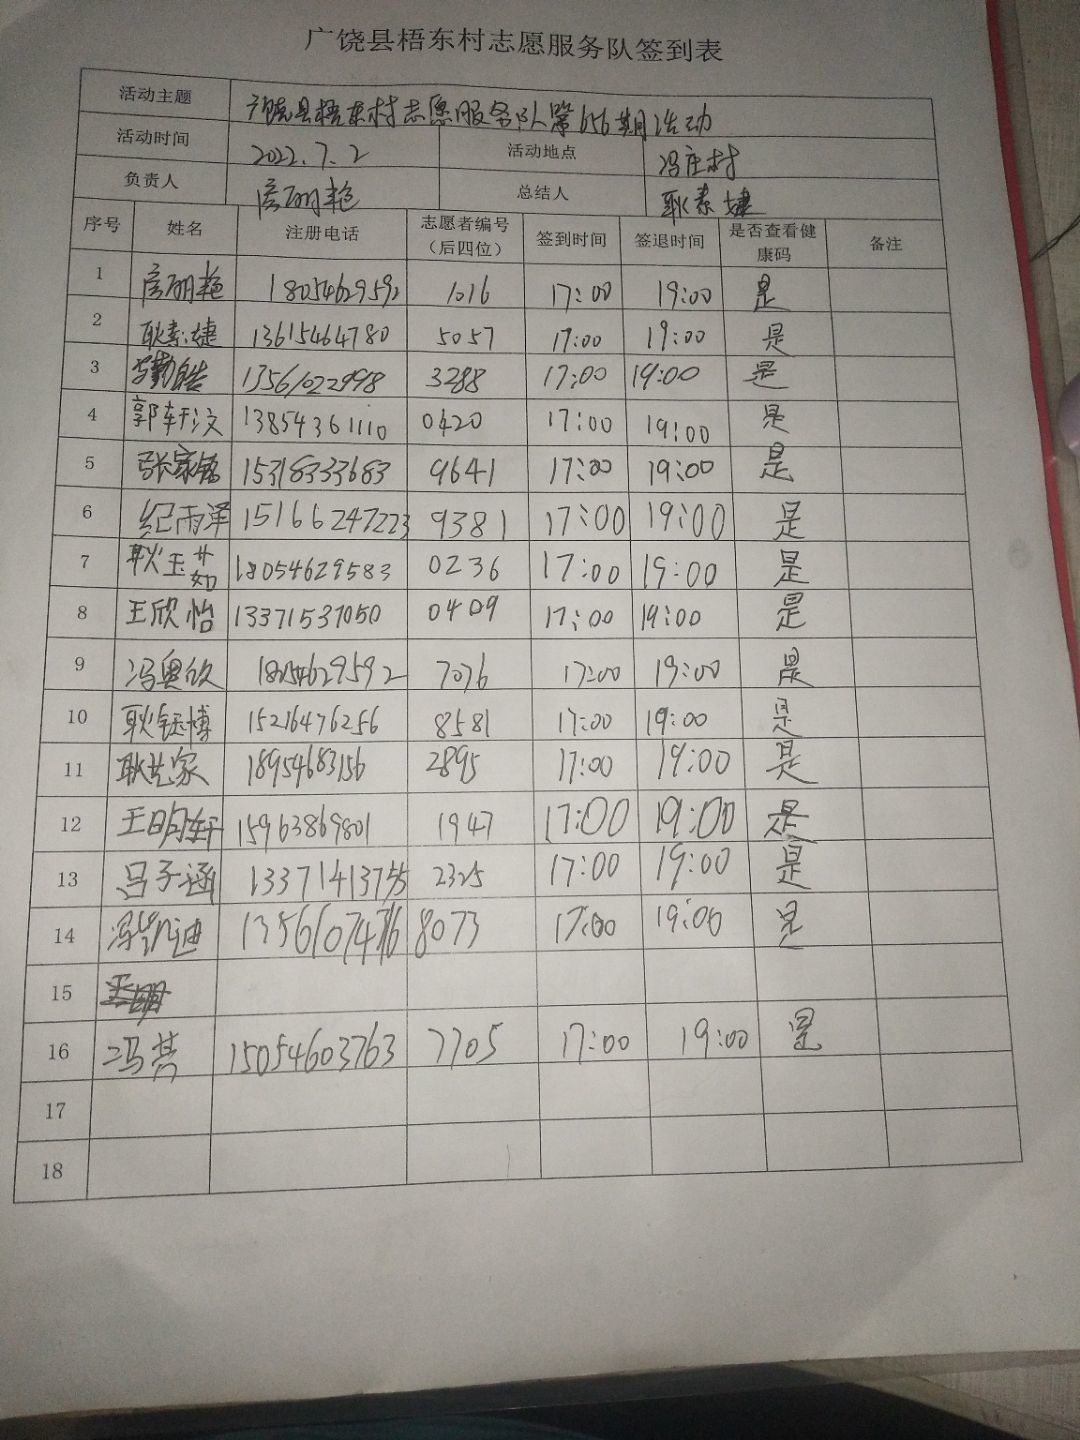 广饶县梧东村志愿服务队签到表
活动主题 广饶县梧东村志愿服务队第656期活动
活动时间 2022.7.2 活动地点 冯庄村
负责人 艳 总结人 耿素婕
序号 姓名 注册电话 志愿者编号（后四位） 签到时间 签退时间 是否查看健康码 备注
1 艳 18054629592 1016 17:00 19:00 是
2 耿素婕 13615464780 5057 17:00 19:00 是
3 勤皓 13561022998 3288 17:00 19:00 是
4 郭轩汶 13854361110 0420 17:00 19:00 是
5 张家铭 15318333683 9641 17:00 19:00 是
6 纪雨泽 15166247223 9381 17:00 19:00 是
7 耿玉茹 18054629583 0236 17:00 19:00 是
8 王欣怡 13371537050 0409 17:00 19:00 是
9 冯奥欣 18054629592 7076 17:00 19:00 是
10 耿钰博 15216476256 8581 17:00 19:00 是
11 耿艺家 18954683156 2895 17:00 19:00 是
12 王明轩 15963869801 1947 17:00 19:00 是
13 吕子涵 2325 17:00 19:00 是
14 冯凯迪 13561607476 8073 17:00 19:00 是
15
16 冯其 15054603763 7705 17:00 19:00 是
17
18